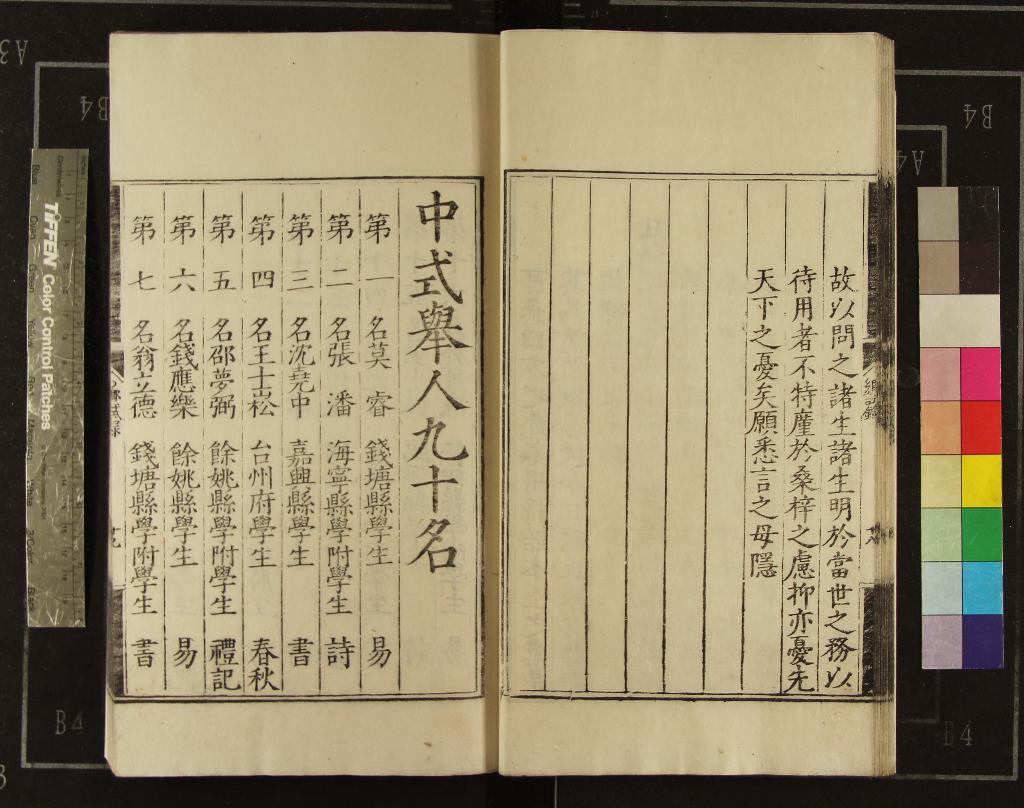 故以問之諸生諸生明於當世之務以
待用者不特廑於桑梓之慮抑亦憂先
天下之憂矣願悉言之毋隱
中式舉人九十名
第一名莫睿 錢塘縣學生 易
第二名張潘 海寧縣學附學生 詩
第三名沈堯中 嘉興縣學生 書
第四名王士崧 台州府學生 春秋
第五名邵夢弼 餘姚縣學附學生 禮記
第六名錢應樂 餘姚縣學生 易
第七名翁立德 錢塘縣學附學生 書
TIFFEN Color Control Patches
A3
B4
B4
A4
B4
B4